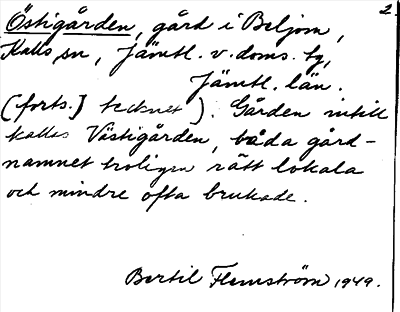 2.
Östigården, gård i Beljom,
Kalls sn, Jämtl. v. doms. tg,
Jämtl. län.
(forts.] tecknet ). Gården intill
kallas Västigården, båda gård-
namnet troligen rätt lokala
och mindre ofta brukade.
Bertil Flemström 1949.